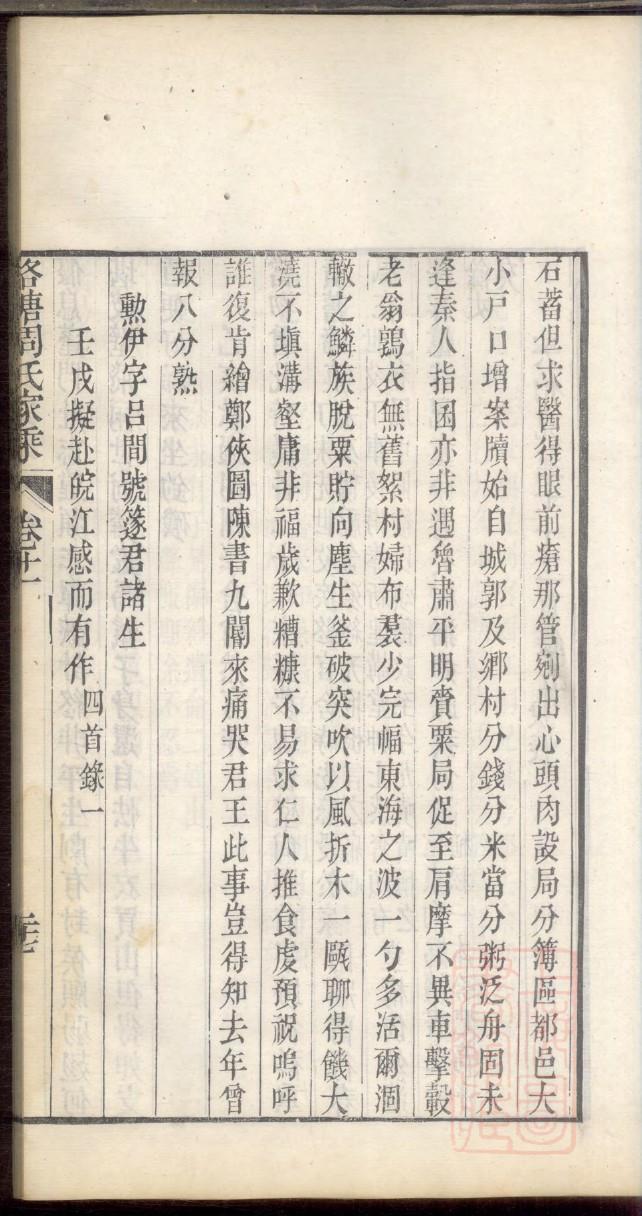 石蓄但求醫得眼前瘡那管剜出心頭肉設局分簿區都邑大
小戸口增案牘始自城郭及鄉村分錢分米當分粥泛舟固未
逢秦人指囷亦非遇魯肅平明賫粟局促至肩摩不異車擊轂
老翁鶉衣無舊絮村婦布裠少完幅東海之波一勺多活爾涸
轍之鱗族脫粟貯向塵生釜破突吹以風折木一甌聊得饑大
澆不塡溝壑庸非福歲歉糟糠不易求仁人推食虔預祝嗚呼
誰復肯繪鄭俠圖陳書九閽來痛哭君王此事豈得知去年曾
報八分熟
勳伊字呂間號簉君諸生
壬戌擬赴皖江感而有作四首錄一
周氏家乘 卷十一